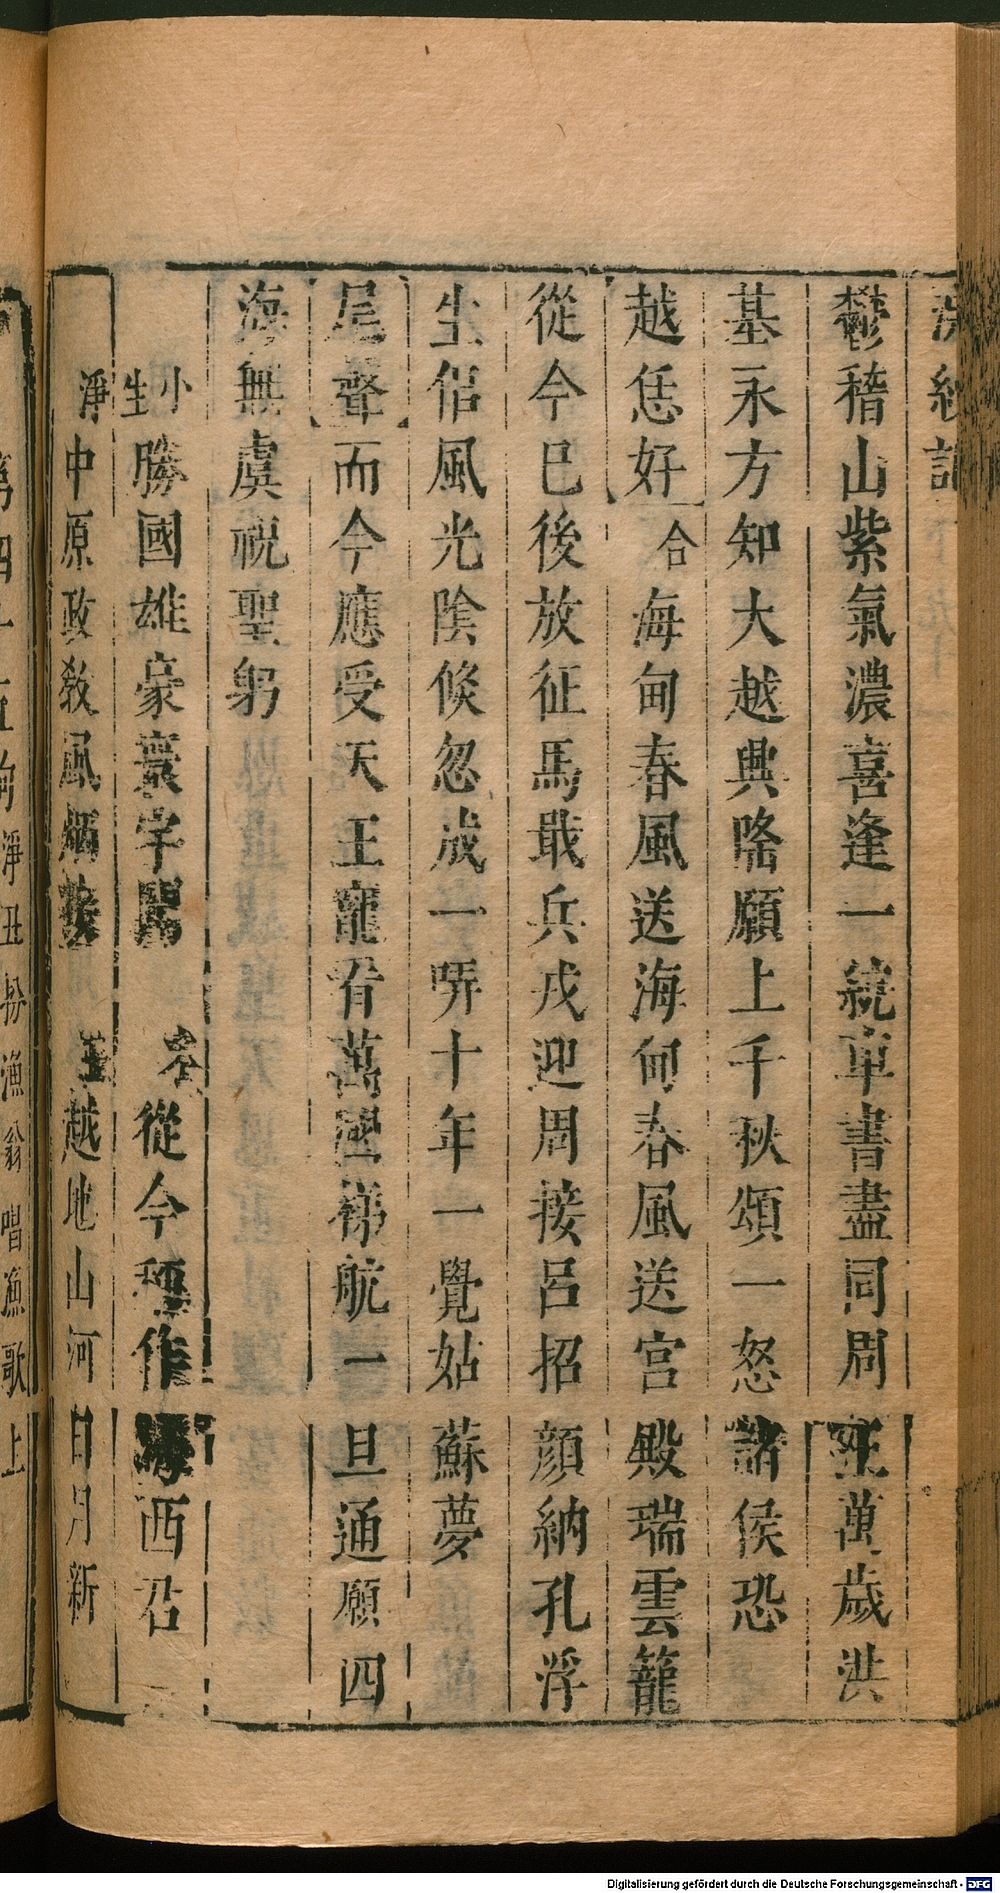 浣紗記
鬱稽山紫氣濃喜逢一統車書盡同周王萬歲洪
基永方知大越興隆願上千秋頌一怒諸侯恐
越恁好
合海甸春風送海甸春風送宫殿瑞雲籠
從今已後放征馬戢兵戎迎周接呂招顏納孔浮
生侣風光陰倏忽成一哢十年一覺姑蘇夢
尾聲
而今應受天王寵看萬國梯航一旦通願四
海無虞祝聖躬
小生勝國雄豪寰宇聞
衆從今稱作海西君
淨中原政敎風
越地山河日月新
第四十五齣淨丑扮漁翁唱漁歌上
Digitalisierung gefördert durch die Deutsche Forschungsgemeinschaft - DFG